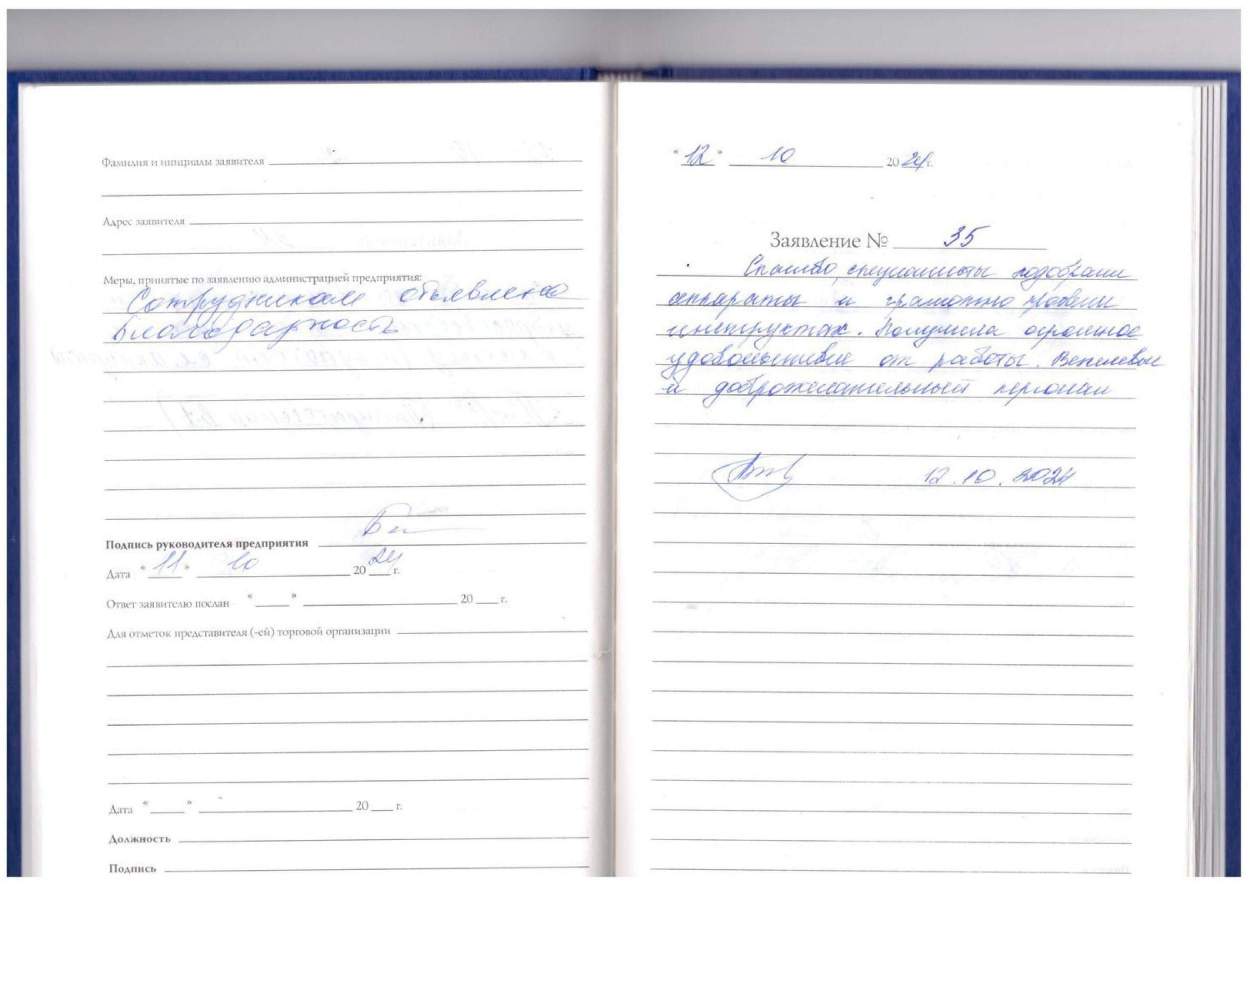 Фамилия и инициалы заявителя
Адрес заявителя
Меры, принятые по заявлению администрацией предприятия:
Сотрудникам объявлена
благодарность
Подпись руководителя предприятия
Дата "11" 10 2024 г.
Ответ заявителю послан " " 20 г.
Для отметок представителя (-ей) торговой организации
Дата " " 20 г.
Должность
Подпись
"12" 10 2024г.
Заявление № 35
Спасибо, специалисты подобрали
аппараты и грамотно провели
инструктаж. Получила огромное
удовольствие от работы. Вежливый
и доброжелательный персонал
12.10.2024